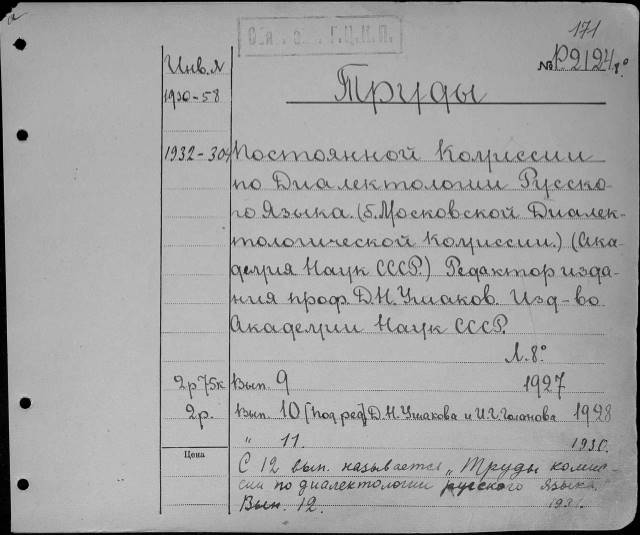 171
№ Р2124 8°
Инв. №
1930-58
Труды
1932-304
Постоянной Комиссии
по Диалектологии Русско-
го Языка. (б. Московской Диалек-
тологической Комиссии.) (Ака-
демия Наук СССР.) Редактор изда-
ния проф. Д.Н. Ушаков. Изд-во
Академии Наук СССР.
Л. 8°
2р 75к Вып. 9 1927
2р. Вып. 10 [под ред] Д.Н. Ушакова и И.Г. Голанова 1928
" 11. 1930.
Цена
С 12 вып. называется „Труды комис-
сии по диалектологии русского языка."
Вып. 12. 1931.